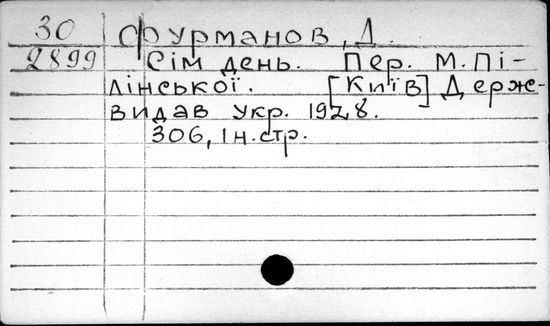 30 Фурманов, Д.
2899 Сім день. Пер. М. Пі-
лінської. [Київ] Держ-
видав Укр. 1928.
306, 1 н. стр.